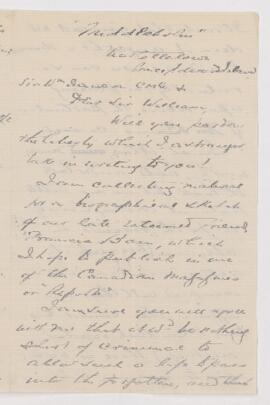 near Charlottetown
Prince Edward Island
Sir Wm Dawson CMG &
Dear Sir William,
Will you pardon
the liberty which I a stranger
take in writing to you!
I am collecting material
for a biographical sketch
of our late esteemed friend,
Francis Bain, which
I hope to publish in one
of the Canadian Magazines
or reports.
I am sure you will agree
with me that it wd be nothing
short of criminal to
allow such a life to pass
into the forgotten, and thus